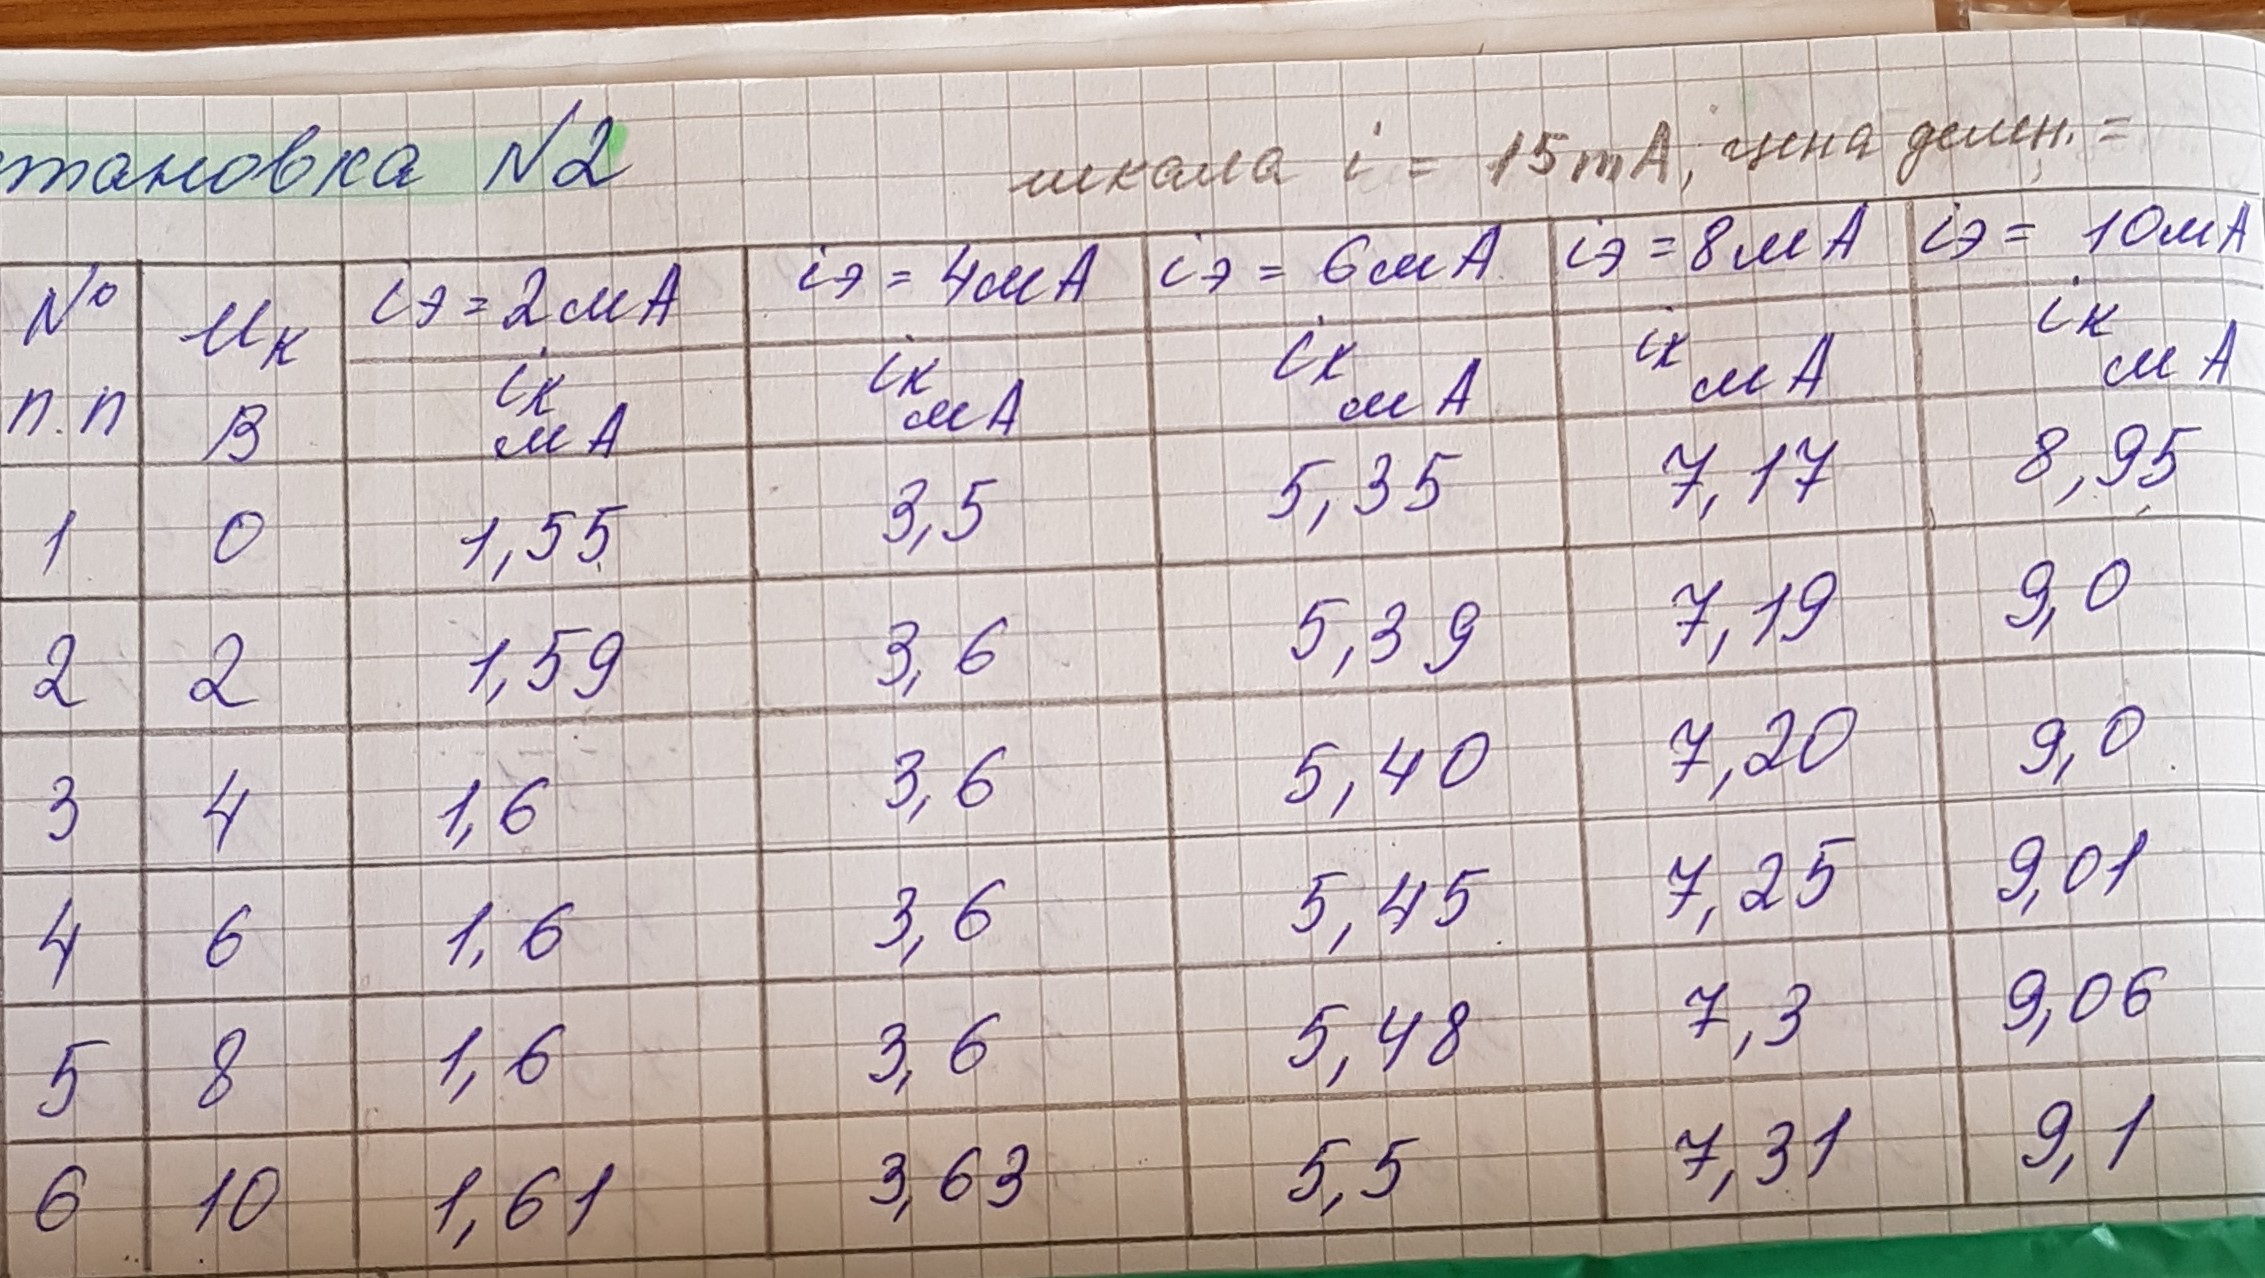 тановка №2
шкала i = 15mA, цена делен. =
№ п.п | Uк В | iэ = 2мА | iэ = 4мА | iэ = 6мА | iэ = 8мА | iэ = 10мА
iк мА | iк мА | iк мА | iк мА | iк мА
1 | 0 | 1,55 | 3,5 | 5,35 | 7,17 | 8,95
2 | 2 | 1,59 | 3,6 | 5,39 | 7,19 | 9,0
3 | 4 | 1,6 | 3,6 | 5,40 | 7,20 | 9,0
4 | 6 | 1,6 | 3,6 | 5,45 | 7,25 | 9,01
5 | 8 | 1,6 | 3,6 | 5,48 | 7,3 | 9,06
6 | 10 | 1,61 | 3,63 | 5,5 | 7,31 | 9,1